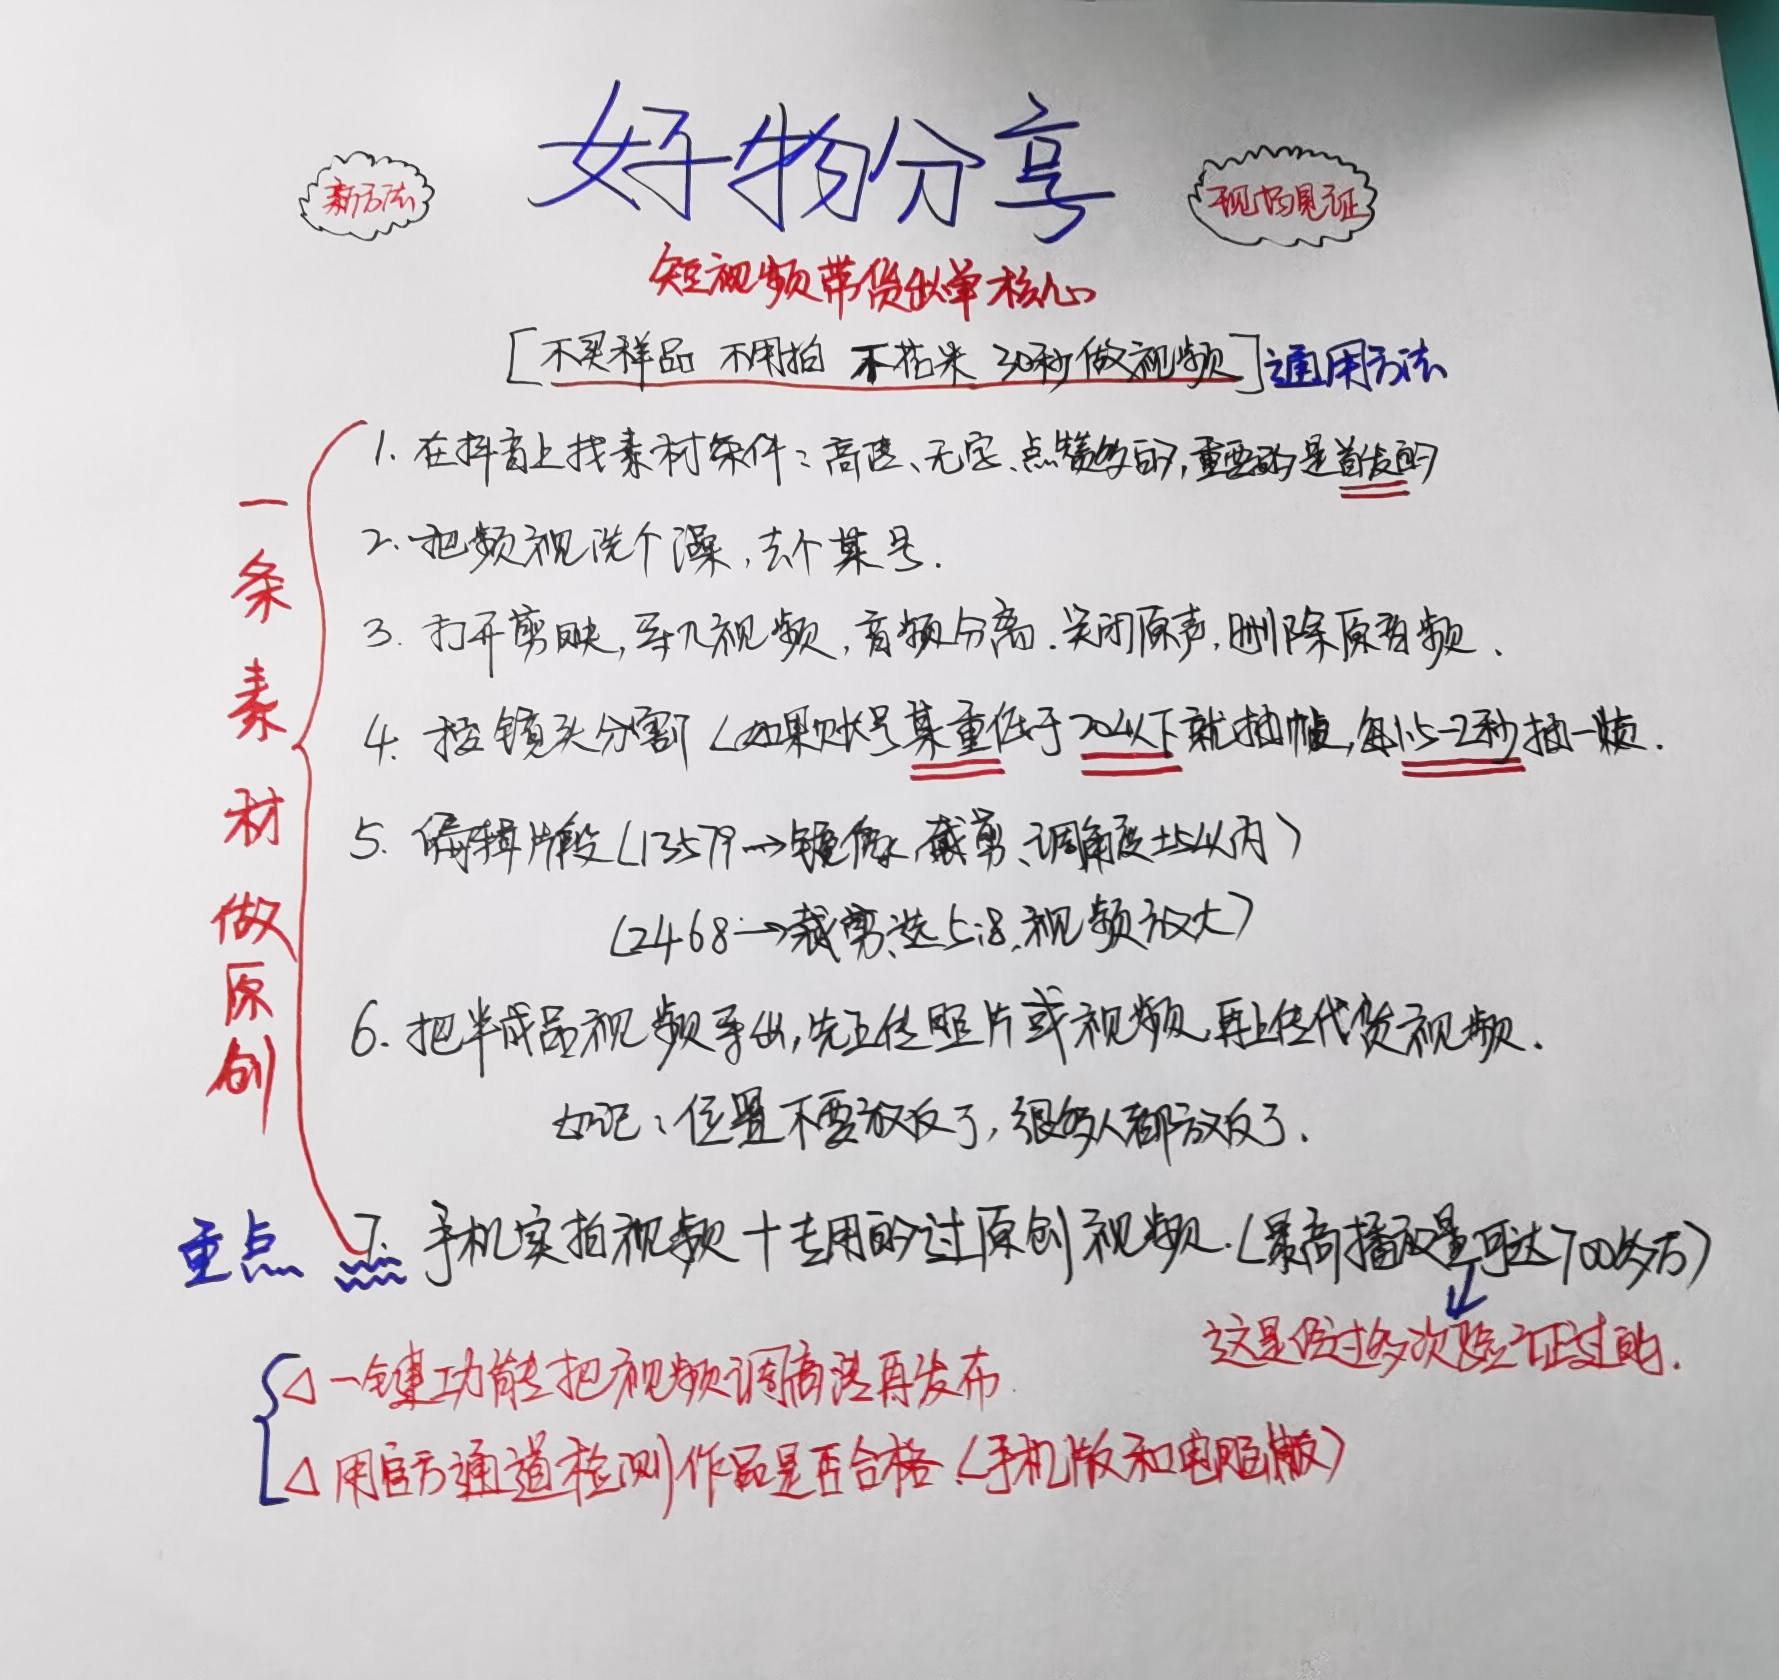 好物分享
新方法
现场见证
短视频带货出单核心
[不买样品 不用拍 不抬米 30秒做视频]通用方法
一条素材做原创
1. 在抖音上找素材条件：高清、无字、点赞多的，重要的是首发的
2. 把频视洗个澡，去个某号.
3. 打开剪映，导入视频，音频分离.关闭原声，删除原音频.
4. 按镜头分割（如果账号某重低于20以下就抽帧，每1.5-2秒抽一帧.
5. 编辑片段（13579→镜像，裁剪、调角度±5以内）
（2468→裁剪、选5:8，视频放大）
6. 把半成品视频导出，先上传照片或视频，再上传代货视频.
切记：位置不要放反了，很多人都放反了.
重点 7. 手机实拍视频+专用的过原创视频.（最高播放量可达700多万）
这是经过多次验证过的.
△一键功能把视频调高清再发布
△用官方通道检测作品是否合格（手机版和电脑版）